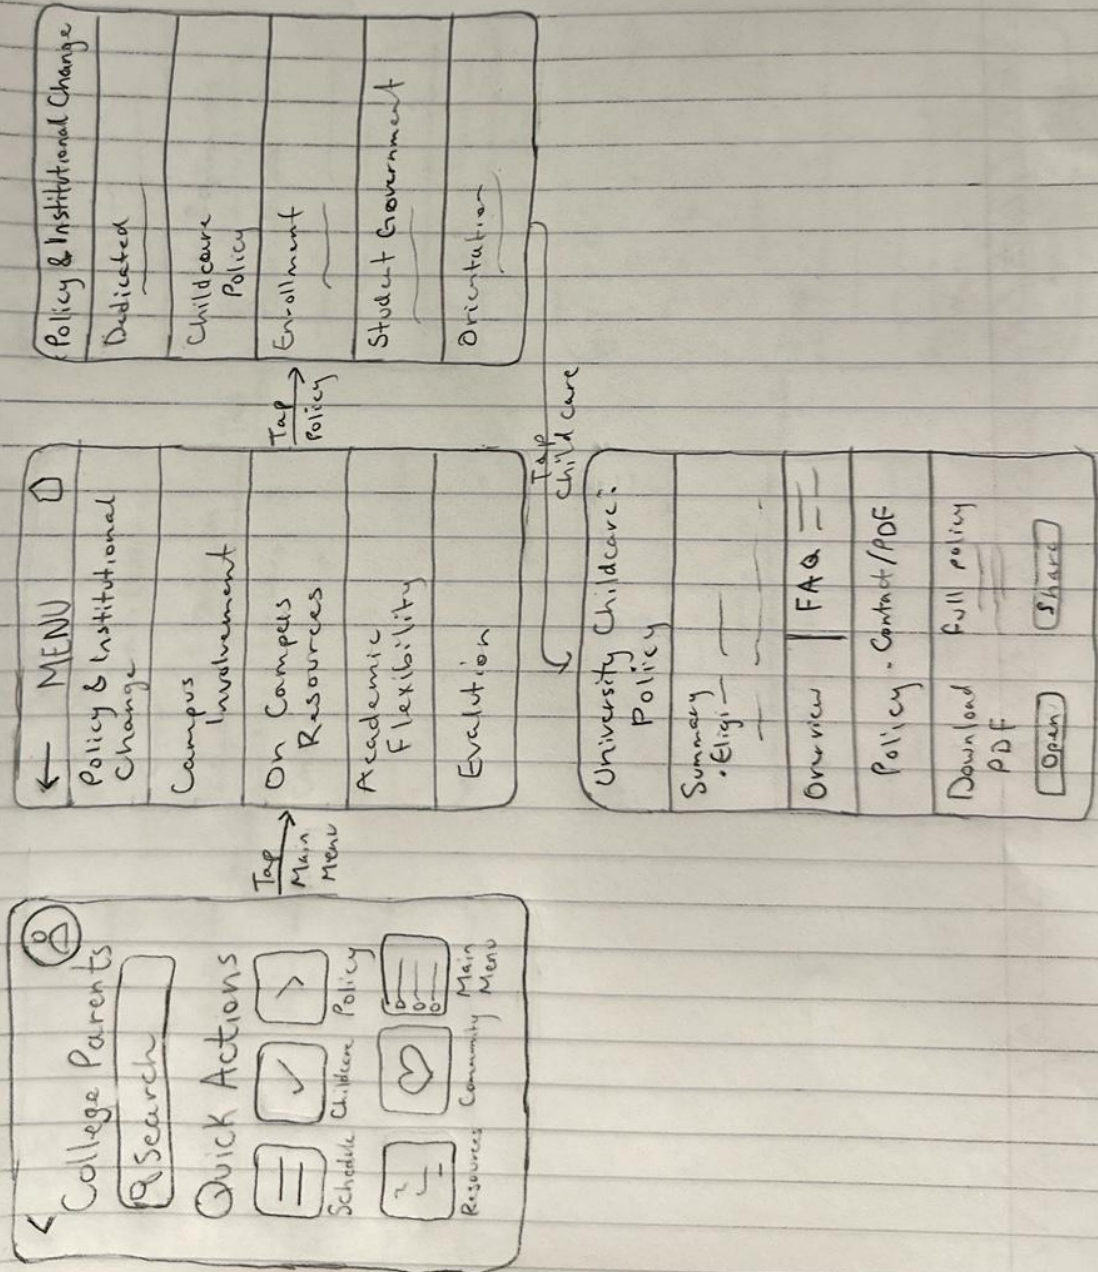 College Parents
Search
Quick Actions
Schedule
Childcare
Policy
Resources
Community
Main
Menu
Tap
Main
Menu
← MENU
Policy & Institutional
Change
Campus
Involvement
On Campus
Resources
Academic
Flexibility
Evalution
Tap
Policy
Policy & Institutional Change
Dedicated
Childcare
Policy
Enrollment
Student Government
Orientation
Tap
Child care
University Childcare:
Policy
Summary
• Eligi
Overview | FAQ
Policy • Contact/PDF
Download
PDF
full policy
Open
Share